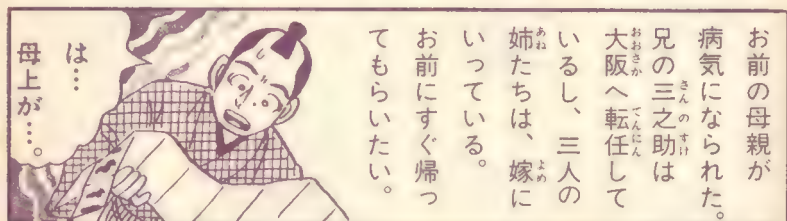 お前の母親が
病気になられた。
兄の三之助は
大阪へ転任して
いるし、三人の
姉たちは、嫁に
いっている。
お前にすぐ帰っ
てもらいたい。
は…
母上が…。